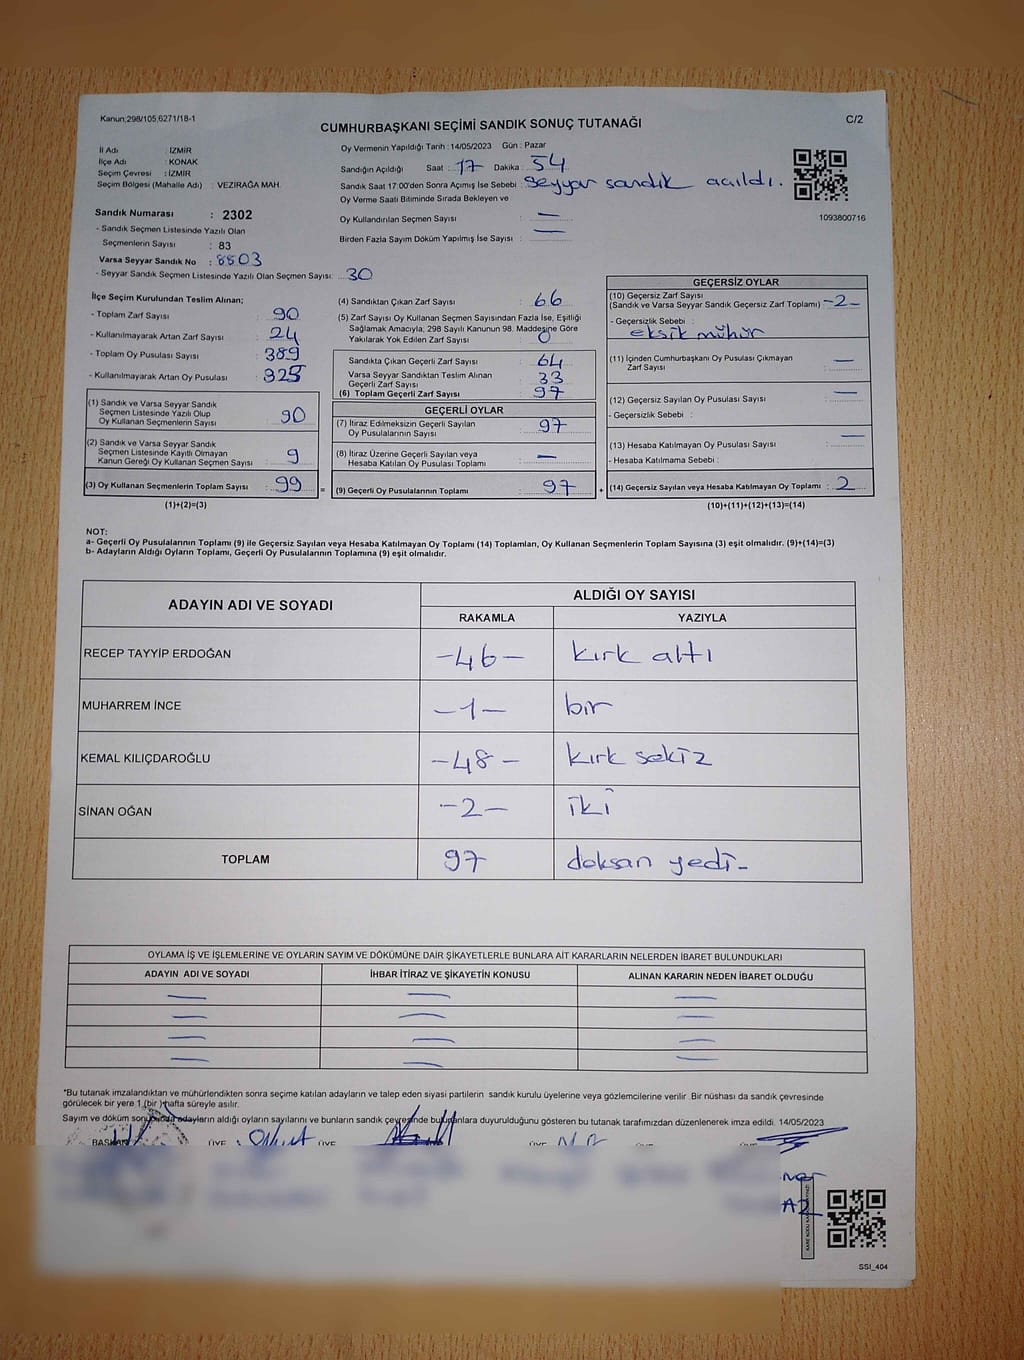 Kanun,298/105,6271/18-1
CUMHURBAŞKANI SEÇİMİ SANDIK SONUÇ TUTANAĞI
C/2
İl Adı : İZMİR
İlçe Adı : KONAK
Seçim Çevresi : İZMİR
Seçim Bölgesi (Mahalle Adı) : VEZİRAĞA MAH.
Sandık Numarası : 2302
- Sandık Seçmen Listesinde Yazılı Olan
Seçmenlerin Sayısı : 83
Varsa Seyyar Sandık No : 8803
- Seyyar Sandık Seçmen Listesinde Yazılı Olan Seçmen Sayısı: 30
Oy Vermenin Yapıldığı Tarih : 14/05/2023 Gün : Pazar
Sandığın Açıldığı Saat : 17 Dakika : 54
Sandık Saat 17:00'den Sonra Açımış İse Sebebi : Seyyar sandık açıldı.
Oy Verme Saati Bitiminde Sırada Bekleyen ve
Oy Kullandırılan Seçmen Sayısı : —
Birden Fazla Sayım Döküm Yapılmış İse Sayısı : —
1093800716
İlçe Seçim Kurulundan Teslim Alınan;
- Toplam Zarf Sayısı : 90
- Kullanılmayarak Artan Zarf Sayısı : 24
- Toplam Oy Pusulası Sayısı : 389
- Kullanılmayarak Artan Oy Pusulası : 325
(1) Sandık ve Varsa Seyyar Sandık
Seçmen Listesinde Yazılı Olup
Oy Kullanan Seçmenlerin Sayısı : 90
(2) Sandık ve Varsa Seyyar Sandık
Seçmen Listesinde Kayıtlı Olmayan
Kanun Gereği Oy Kullanan Seçmen Sayısı : 9
(3) Oy Kullanan Seçmenlerin Toplam Sayısı : 99
(1)+(2)=(3)
(4) Sandıktan Çıkan Zarf Sayısı : 66
(5) Zarf Sayısı Oy Kullanan Seçmen Sayısından Fazla İse, Eşitliği
Sağlamak Amacıyla, 298 Sayılı Kanunun 98. Maddesine Göre
Yakılarak Yok Edilen Zarf Sayısı : 0
Sandıkta Çıkan Geçerli Zarf Sayısı : 64
Varsa Seyyar Sandıktan Teslim Alınan
Geçerli Zarf Sayısı : 33
(6) Toplam Geçerli Zarf Sayısı : 97
GEÇERLİ OYLAR
(7) İtiraz Edilmeksizin Geçerli Sayılan
Oy Pusulalarının Sayısı : 97
(8) İtiraz Üzerine Geçerli Sayılan veya
Hesaba Katılan Oy Pusulası Toplamı : —
= (9) Geçerli Oy Pusulalarının Toplamı : 97 +
GEÇERSİZ OYLAR
(10) Geçersiz Zarf Sayısı
(Sandık ve Varsa Seyyar Sandık Geçersiz Zarf Toplamı) -2-
- Geçersizlik Sebebi :
eksik mühür
(11) İçinden Cumhurbaşkanı Oy Pusulası Çıkmayan
Zarf Sayısı : —
(12) Geçersiz Sayılan Oy Pusulası Sayısı : —
- Geçersizlik Sebebi :
(13) Hesaba Katılmayan Oy Pusulası Sayısı : —
- Hesaba Katılmama Sebebi :
(14) Geçersiz Sayılan veya Hesaba Katılmayan Oy Toplamı : 2
(10)+(11)+(12)+(13)=(14)
NOT:
a- Geçerli Oy Pusulalarının Toplamı (9) ile Geçersiz Sayılan veya Hesaba Katılmayan Oy Toplamı (14) Toplamları, Oy Kullanan Seçmenlerin Toplam Sayısına (3) eşit olmalıdır. (9)+(14)=(3)
b- Adayların Aldığı Oyların Toplamı, Geçerli Oy Pusulalarının Toplamına (9) eşit olmalıdır.
ADAYIN ADI VE SOYADI
ALDIĞI OY SAYISI
RAKAMLA YAZIYLA
RECEP TAYYİP ERDOĞAN -46- kırk altı
MUHARREM İNCE -1- bir
KEMAL KILIÇDAROĞLU -48- kırk sekiz
SİNAN OĞAN -2- iki
TOPLAM 97 doksan yedi-
OYLAMA İŞ VE İŞLEMLERİNE VE OYLARIN SAYIM VE DÖKÜMÜNE DAİR ŞİKAYETLERLE BUNLARA AİT KARARLARIN NELERDEN İBARET BULUNDUKLARI
ADAYIN ADI VE SOYADI İHBAR İTİRAZ VE ŞİKAYETİN KONUSU ALINAN KARARIN NEDEN İBARET OLDUĞU
— — —
— — —
— — —
— — —
*Bu tutanak imzalandıktan ve mühürlendikten sonra seçime katılan adayların ve talep eden siyasi partilerin sandık kurulu üyelerine veya gözlemcilerine verilir. Bir nüshası da sandık çevresinde
görülecek bir yere 1 (bir) hafta süreyle asılır.
Sayım ve döküm adayların aldığı oyların sayılarını ve bunların sandık çevresinde duyurulduğunu gösteren bu tutanak tarafımızdan düzenlenerek imza edildi. 14/05/2023
BAŞKAN ÜYE ÜYE ÜYE
SSİ_404